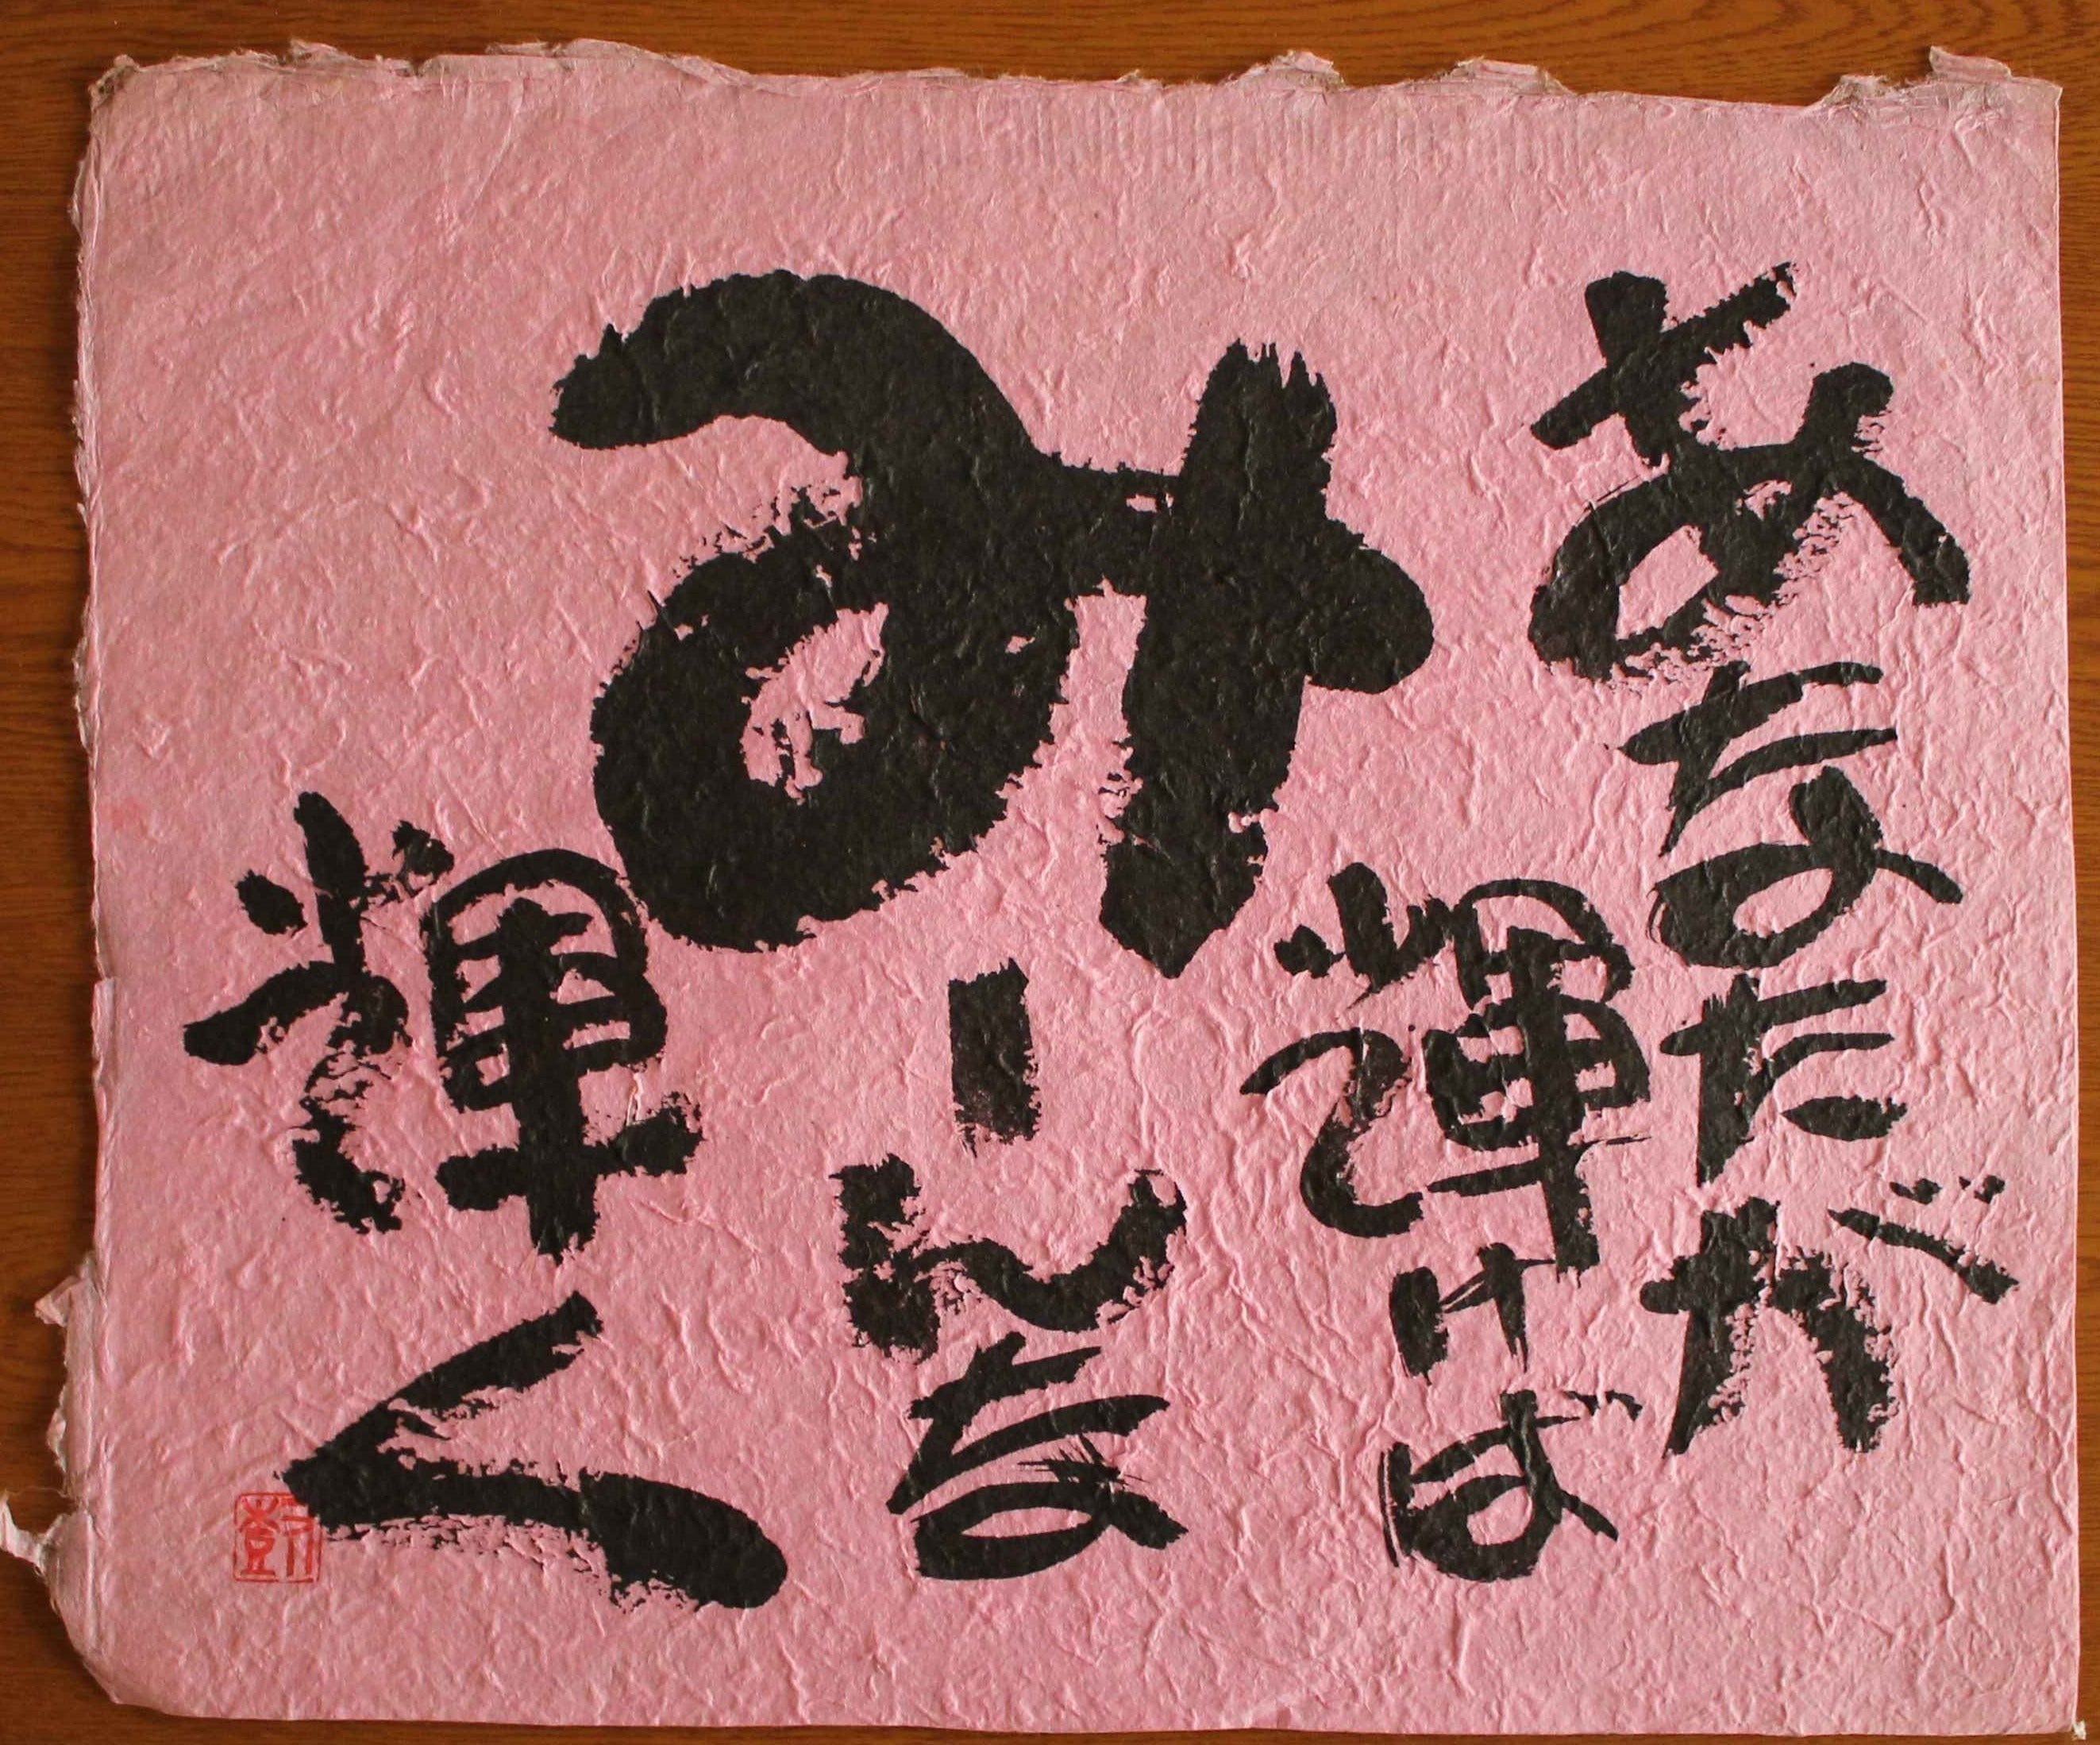 あなたが
輝けば
みーんな
輝く